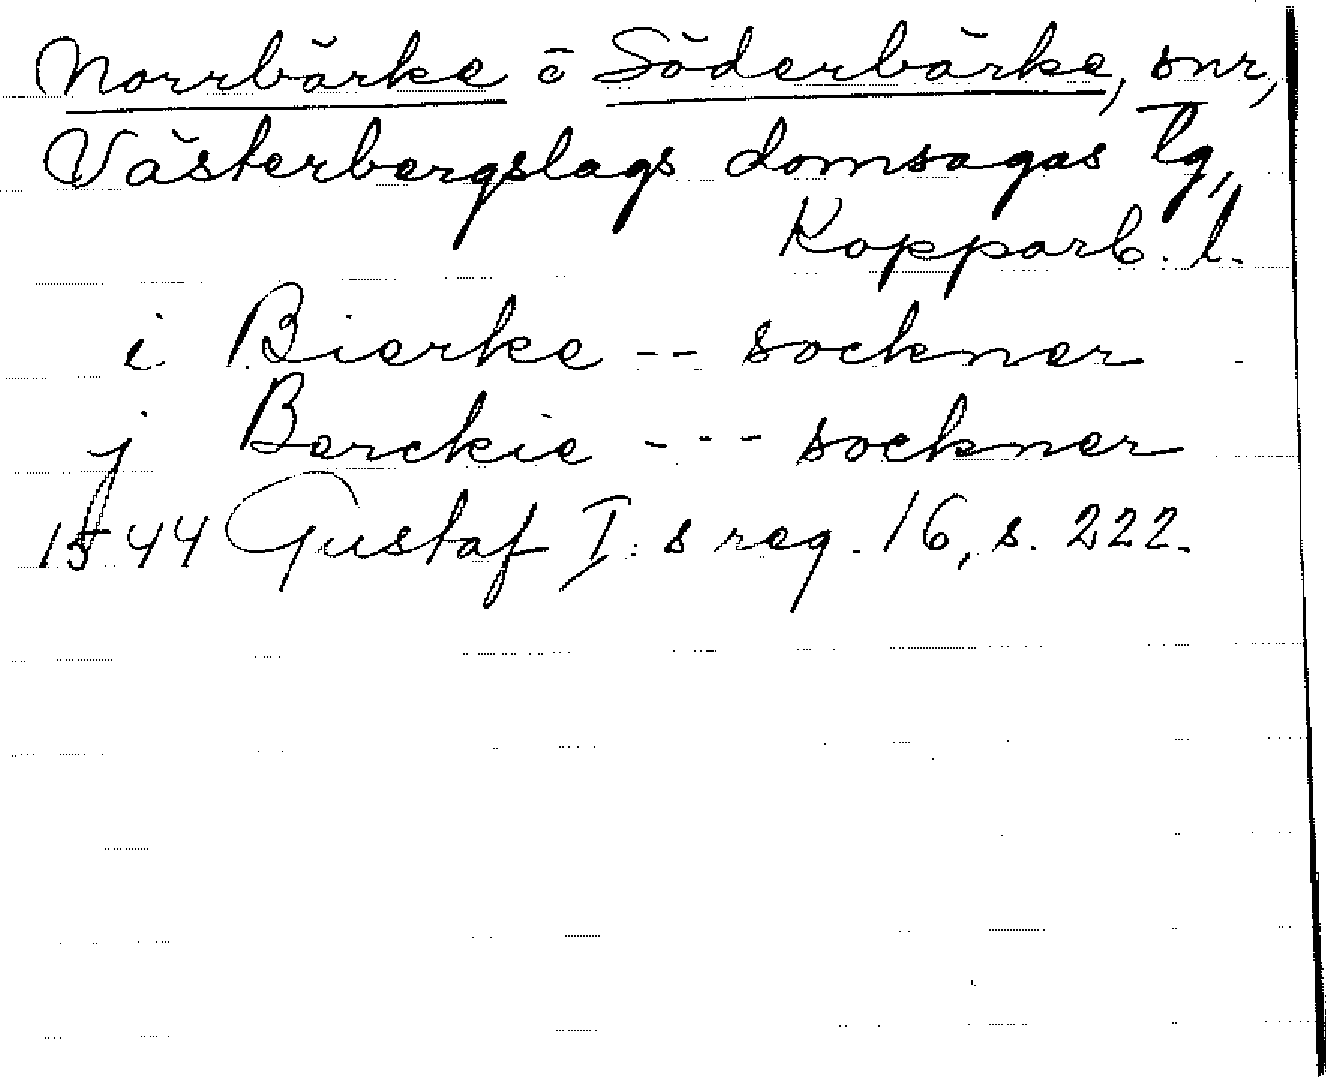 Norrbärke o Söderbärke, snr,
Västerbergslags domsagas tg,
Kopparb. l.
i Bierke -- socknar
j Berckie --- socknar
1544 Gustaf I:s reg. 16, s. 222.